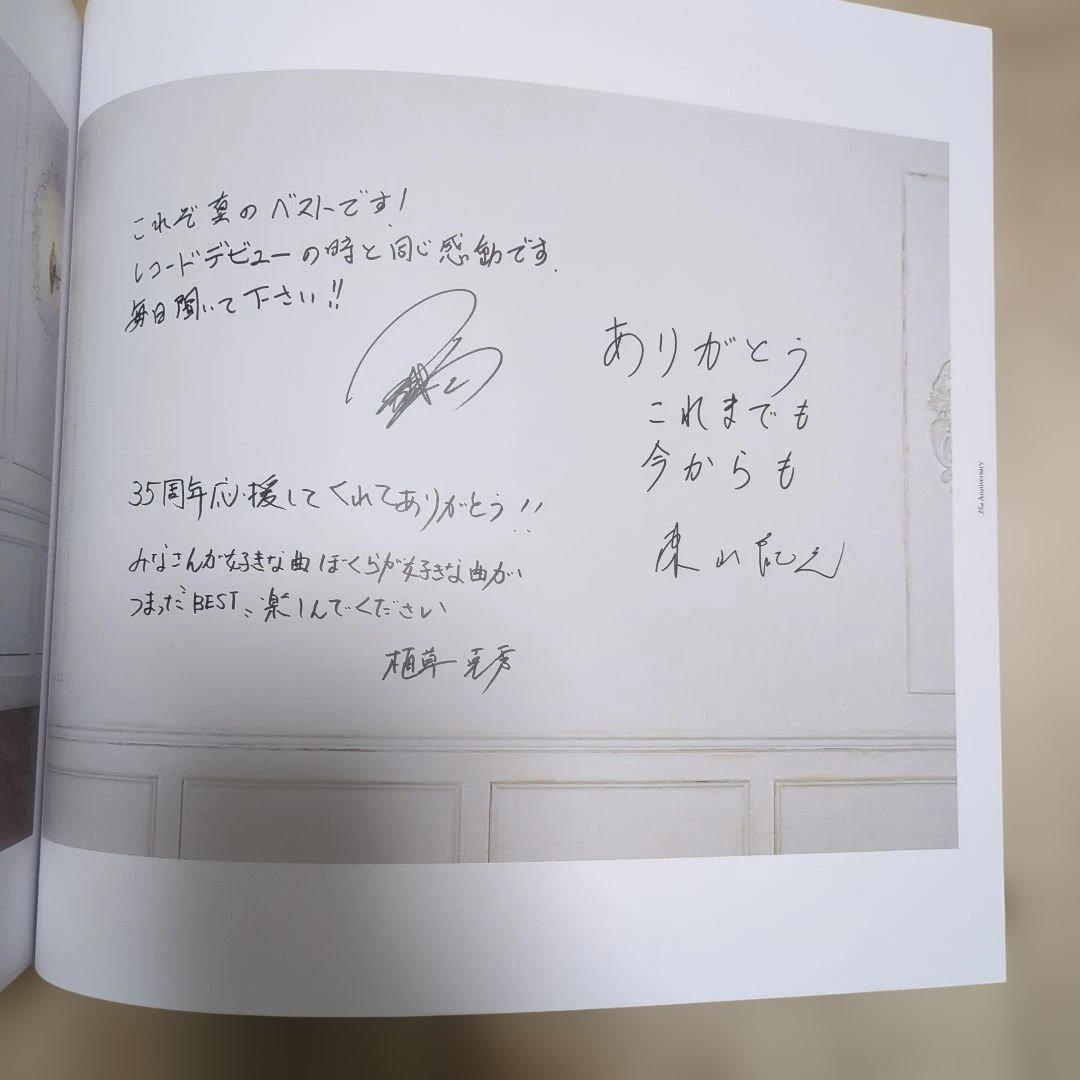 これぞ真のベストです!
レコードデビューの時と同じ感動です.
毎日聞いて下さい!!
35周年応援してくれてありがとう!!
みなさんが好きな曲ぼくらが好きな曲がい
つまったBEST、楽しんでください
植草克秀
ありがとう
これまでも
今からも
東山紀之
35th Anniversary